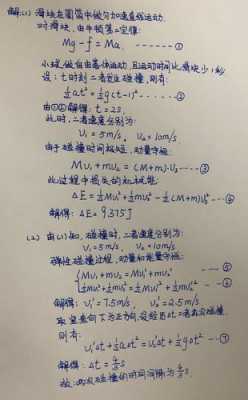 解:(1) 滑块在圆筒中做匀加速直线运动,
对滑块,由牛顿第二定律:
Mg-f=Ma. ------①
小球做自由落体运动,且运动时间比滑块少1秒
设:t时刻二者发生碰撞,则有:
½at²=½g(t-1)² ------②
由①②解得:t=2s.
此时,二者速度分别为:
U₁=5m/s, U₂=10m/s
由于碰撞时间极短,动量守恒:
MU₁+mU₂=(M+m)·U₃ ----③
此过程中损失的机械能:
ΔE=½MU₁²+½mU₂²-½(M+m)U₃² ---④
解得:ΔE=9.375J
(2). 由(1)知,碰撞时,二者速度分别为:
U₁=5m/s, U₂=10m/s.
弹性碰撞过程,动量和能量守恒:
MU₁+mU₂=MU₁'+mU₂' ---⑤
½MU₁²+½mU₂²=½MU₁'²+½mU₂'² ---⑥
解得:U₁'=7.5m/s, U₂'=2.5m/s
取竖直向下为正方向,设经历Δt二者再次碰撞.
则有:
U₁'Δt+½aΔt²=U₂'Δt+½gΔt² ---⑦
解得:Δt=4/3s
故:两次碰撞的时间间隔为4/3s.